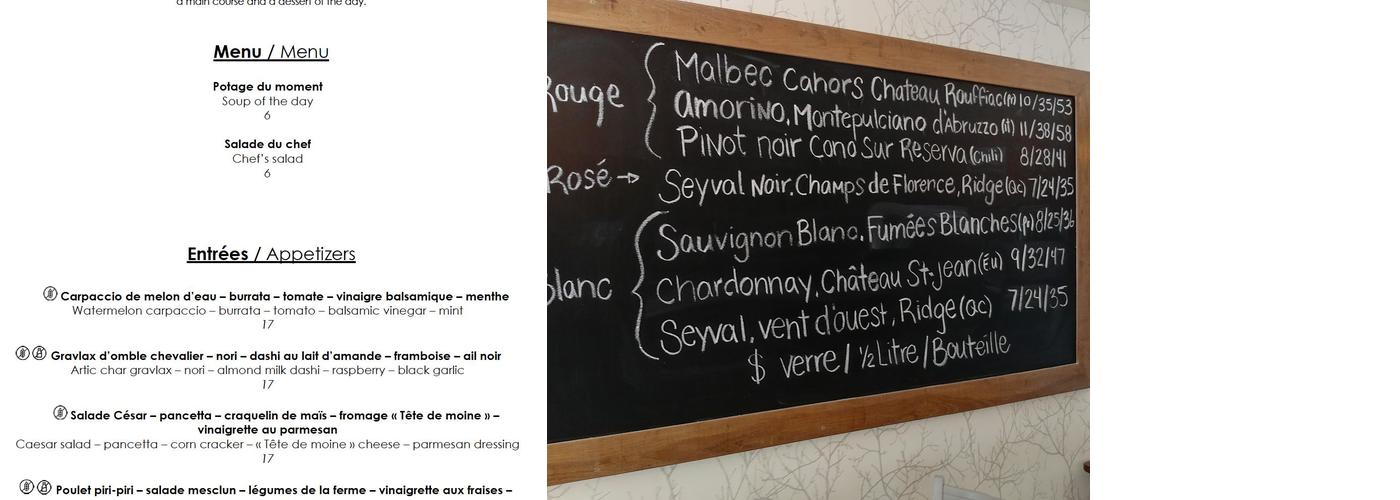 a main course and a dessert of the day.
Menu / Menu
Potage du moment
Soup of the day
6
Salade du chef
Chef's salad
6
Entrées / Appetizers
Carpaccio de melon d'eau – burrata – tomate – vinaigre balsamique – menthe
Watermelon carpaccio – burrata – tomato – balsamic vinegar – mint
17
Gravlax d'omble chevalier – nori – dashi au lait d'amande – framboise – ail noir
Artic char gravlax – nori – almond milk dashi – raspberry – black garlic
17
Salade César – pancetta – craquelin de maïs – fromage « Tête de moine » –
vinaigrette au parmesan
Caesar salad – pancetta – corn cracker – « Tête de moine » cheese – parmesan dressing
17
Poulet piri-piri – salade mesclun – légumes de la ferme – vinaigrette aux fraises –
Rouge
Malbec Cahors Chateau Rouffiac 10/35/53
Amorino, Montepulciano d'Abruzzo (it) 11/38/58
Pinot noir Cono Sur Reserva (Chili) 8/28/41
Rosé → Seyval Noir, Champs de Florence, Ridge (QC) 7/24/35
Blanc
Sauvignon Blanc, Fumées Blanches 8/25/36
Chardonnay, Château St-Jean (Éu) 9/32/47
Seyval, vent d'ouest, Ridge (QC) 7/24/35
$ verre / ½ Litre / Bouteille